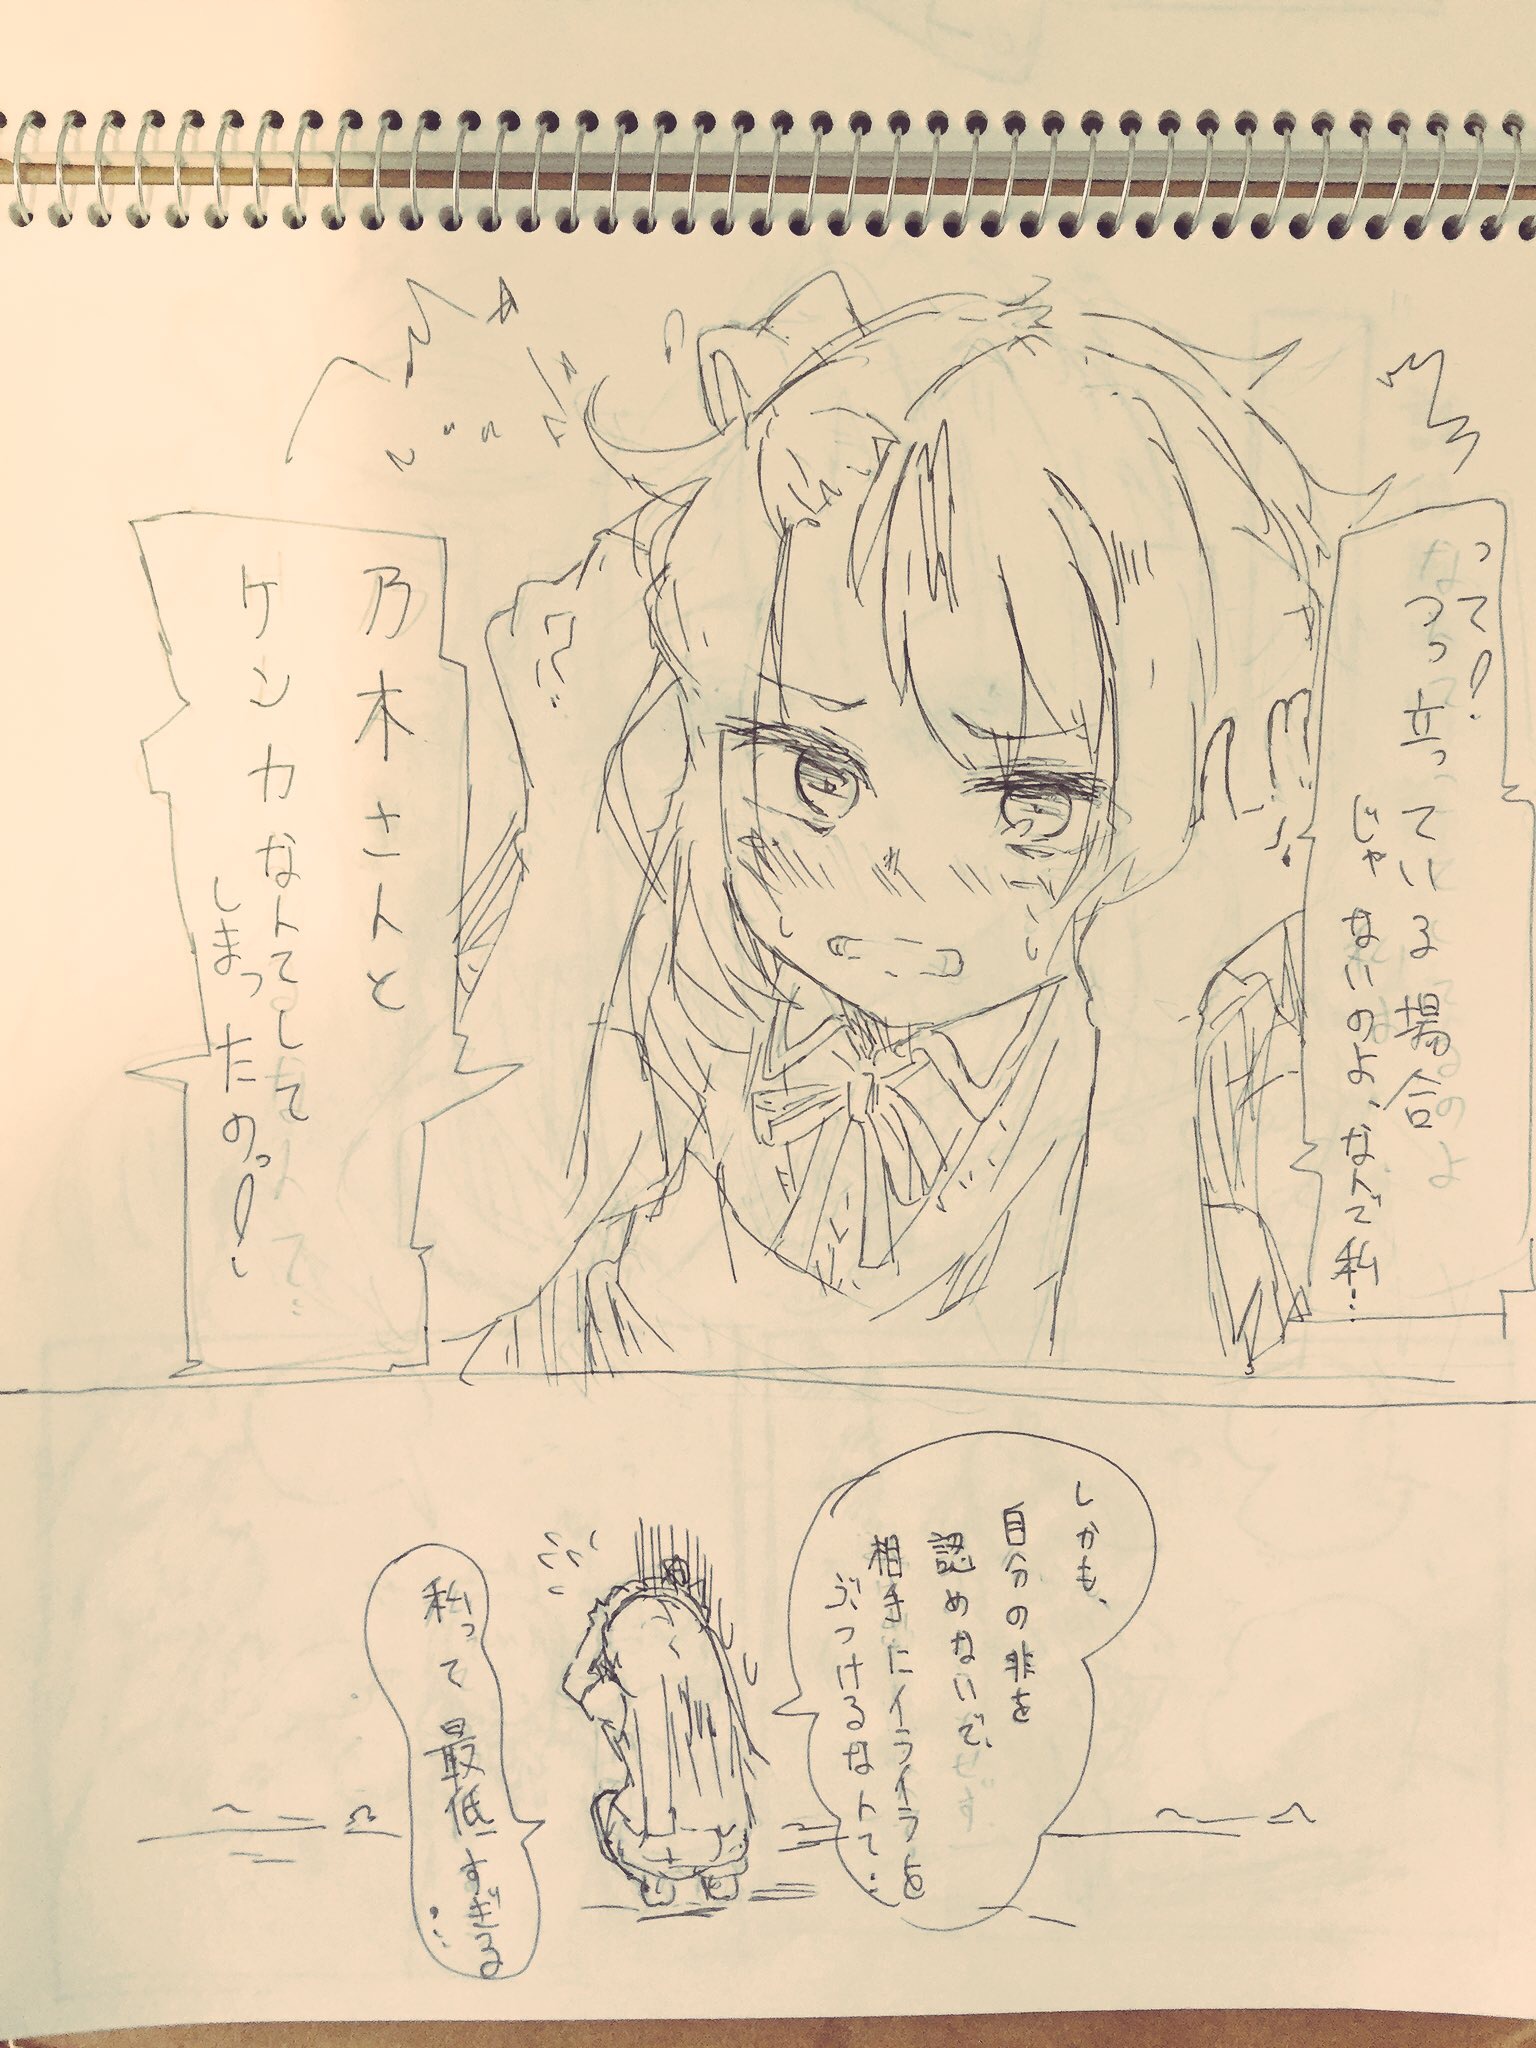 って!
つっ立っている場合
じゃないのよ、なんで私…
乃木さんと
ケンカなんてしてて
しまったのっ!
しかも、
自分の非を
認めないで、
相手にイライラを
ぶつけるなんて…
私って最低すぎる…